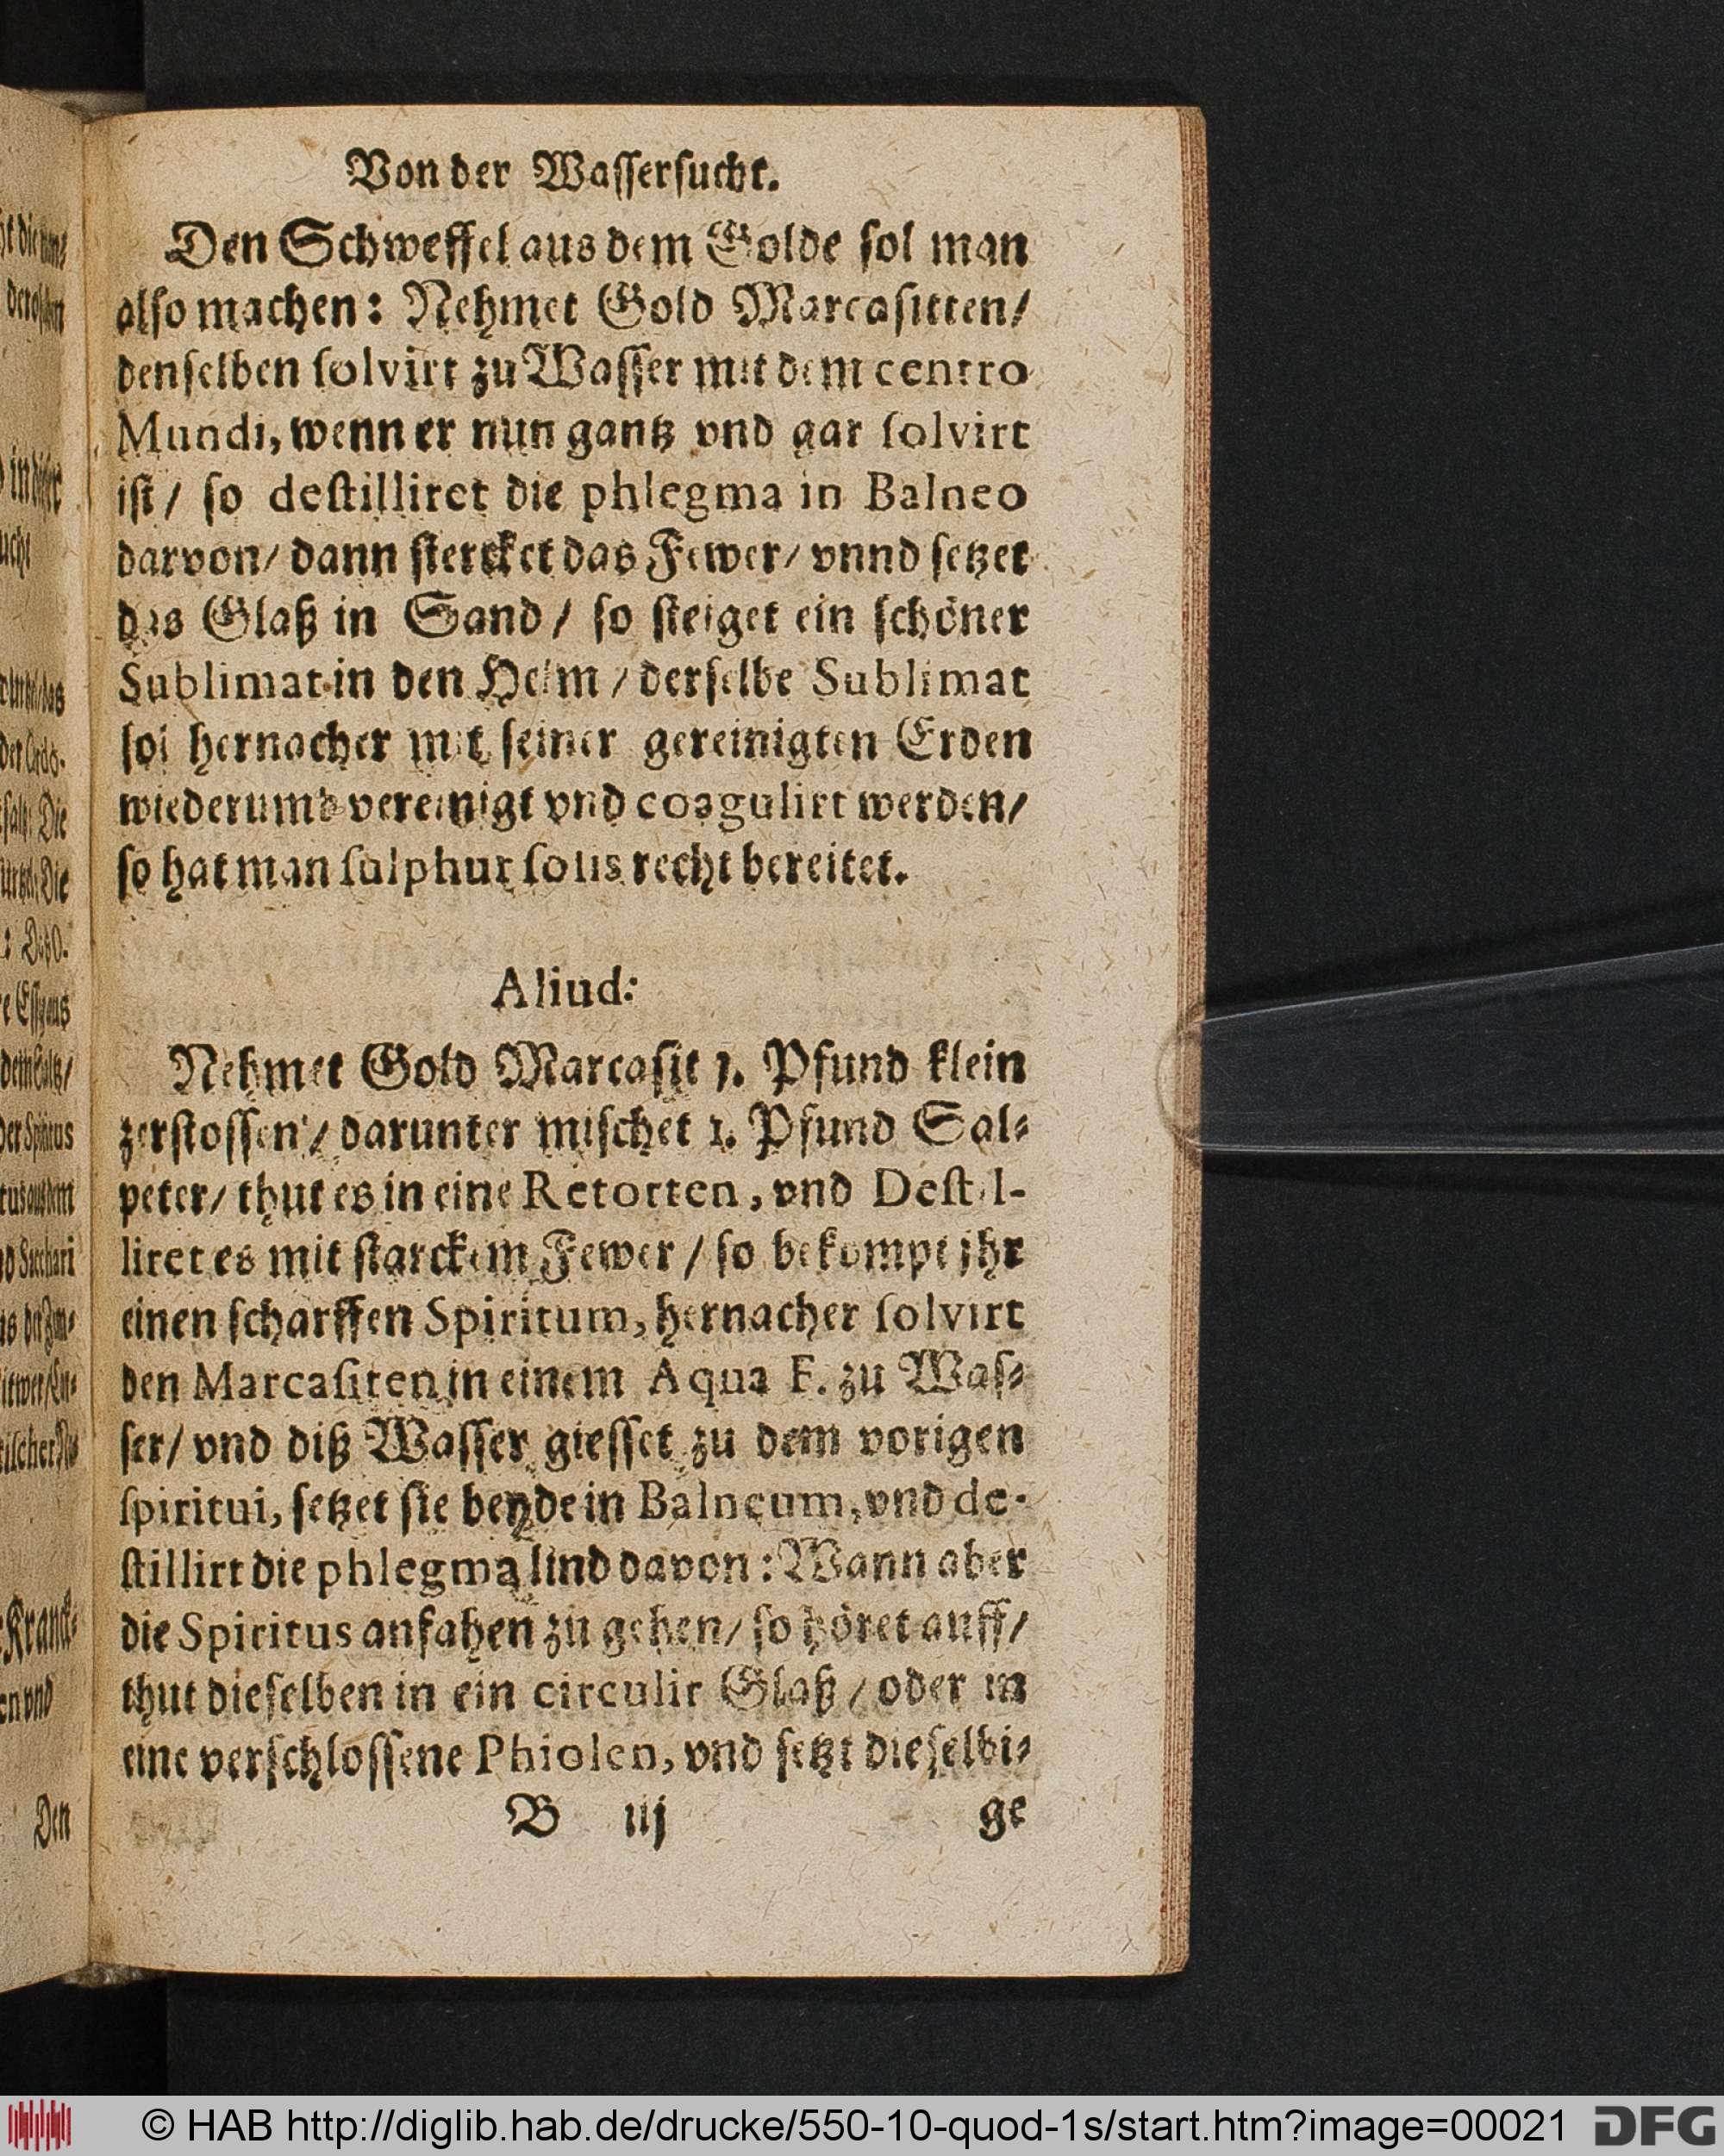 Von der Wasserſucht.
Den Schweffel aus dem Golde ſol man
alſo machen: Nehmet Gold Marcaſitten/
denſelben ſolvirt zu Waſſer mit dem centro
Mundi, wenn er nun gantz vnd gar ſolvirt
iſt/ ſo deſtilliret die phlegma in Balneo
darvon/ dann ſtercket das Fewer/ vnnd ſetzet
das Glaß in Sand/ ſo ſteiget ein ſchöner
Sublimat in den Helm/ derſelbe Sublimat
ſol hernacher mit ſeiner gereinigten Erden
wiederumb vereinigt vnd coagulirt werden/
ſo hat man ſulphur ſolis recht bereitet.
Aliud:
Nehmet Gold Marcaſit 1. Pfund klein
zerſtoſſen/ darunter miſchet 1. Pfund Sal⸗
peter/ thut es in eine Retorten, vnd Deſtil-
liret es mit ſtarckem Fewer/ ſo bekompt jhr
einen ſcharffen Spiritum, hernacher ſolvirt
den Marcaſiten in einem Aqua F. zu Waſ⸗
ſer/ vnd diß Waſſer gieſſet zu dem vorigen
ſpiritui, ſetzet ſie beyde in Balneum, vnd de-
ſtillirt die phlegma lind davon: Wann aber
die Spiritus anfahen zu gehen/ ſo höret auff/
thut dieſelben in ein circulir Glaß/ oder in
eine verſchloſſene Phiolen, vnd ſetzt dieſelbi⸗
B iij ge
Den
© HAB http://diglib.hab.de/drucke/550-10-quod-1s/start.htm?image=00021
DFG